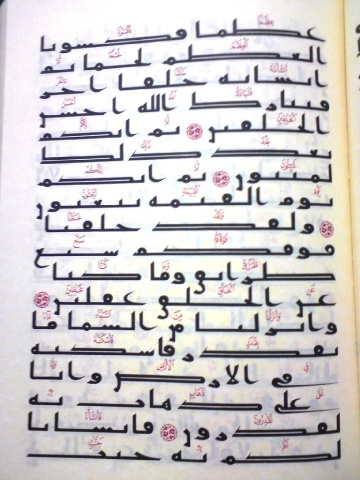 عظما فكسونا
العظم لحما ثم
انشانه خلقا اخر
فتبارك الله احسن
الخلقين ثم انكم
بعد ذلك
لميتون ثم انكم
يوم القيمه تبعثون
ولقد خلقنا
فوقكم سبع
طرائق وما كنا
عن الخلق غفلين
وانزلنا من السما ما
بقدر فاسكنه
في الارض وانا
على ذهاب به
لقدرون فانشانا
لكم به جنت